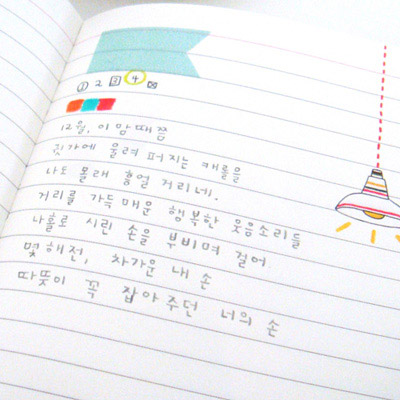 ① 2 3 4 ⊠
12월, 이맘때쯤
길가에 울려 퍼지는 캐롤을
나도 몰래 흥얼 거리네.
거리를 가득 매운 행복한 웃음소리들
나홀로 시린 손을 부비며 걸어.
몇해전, 차가운 내 손
따뜻이 꼭 잡아주던 너의 손